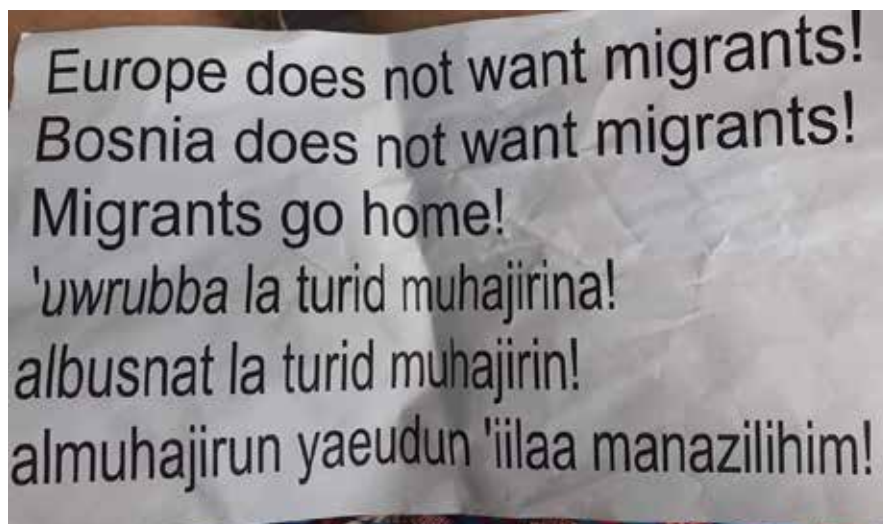 Europe does not want migrants!
Bosnia does not want migrants!
Migrants go home!
'uwrubba la turid muhajirina!
albusnat la turid muhajirin!
almuhajirun yaeudun 'iilaa manazilihim!